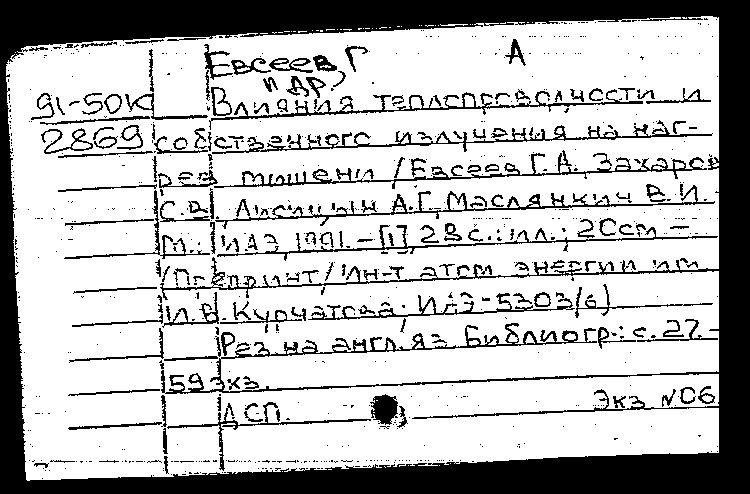 Евсеев, Г А
и др,
91-50К Влияния теплопроводности и
2869 собственного излучения на наг-
рев мишени / Евсеев Г. А., Захаров
С.В., Лисицын А.Г., Маслянкин В. И. -
М.: ИАЭ, 1991. - [1], 28 с.: ил.; 20см -
/Препринт/Ин-т атом. энергии им.
И. В. Курчатова; ИАЭ-5303/6)
Рез. на англ. яз. Библиогр.: с. 27. -
59 экз.
ДСП. Экз №06